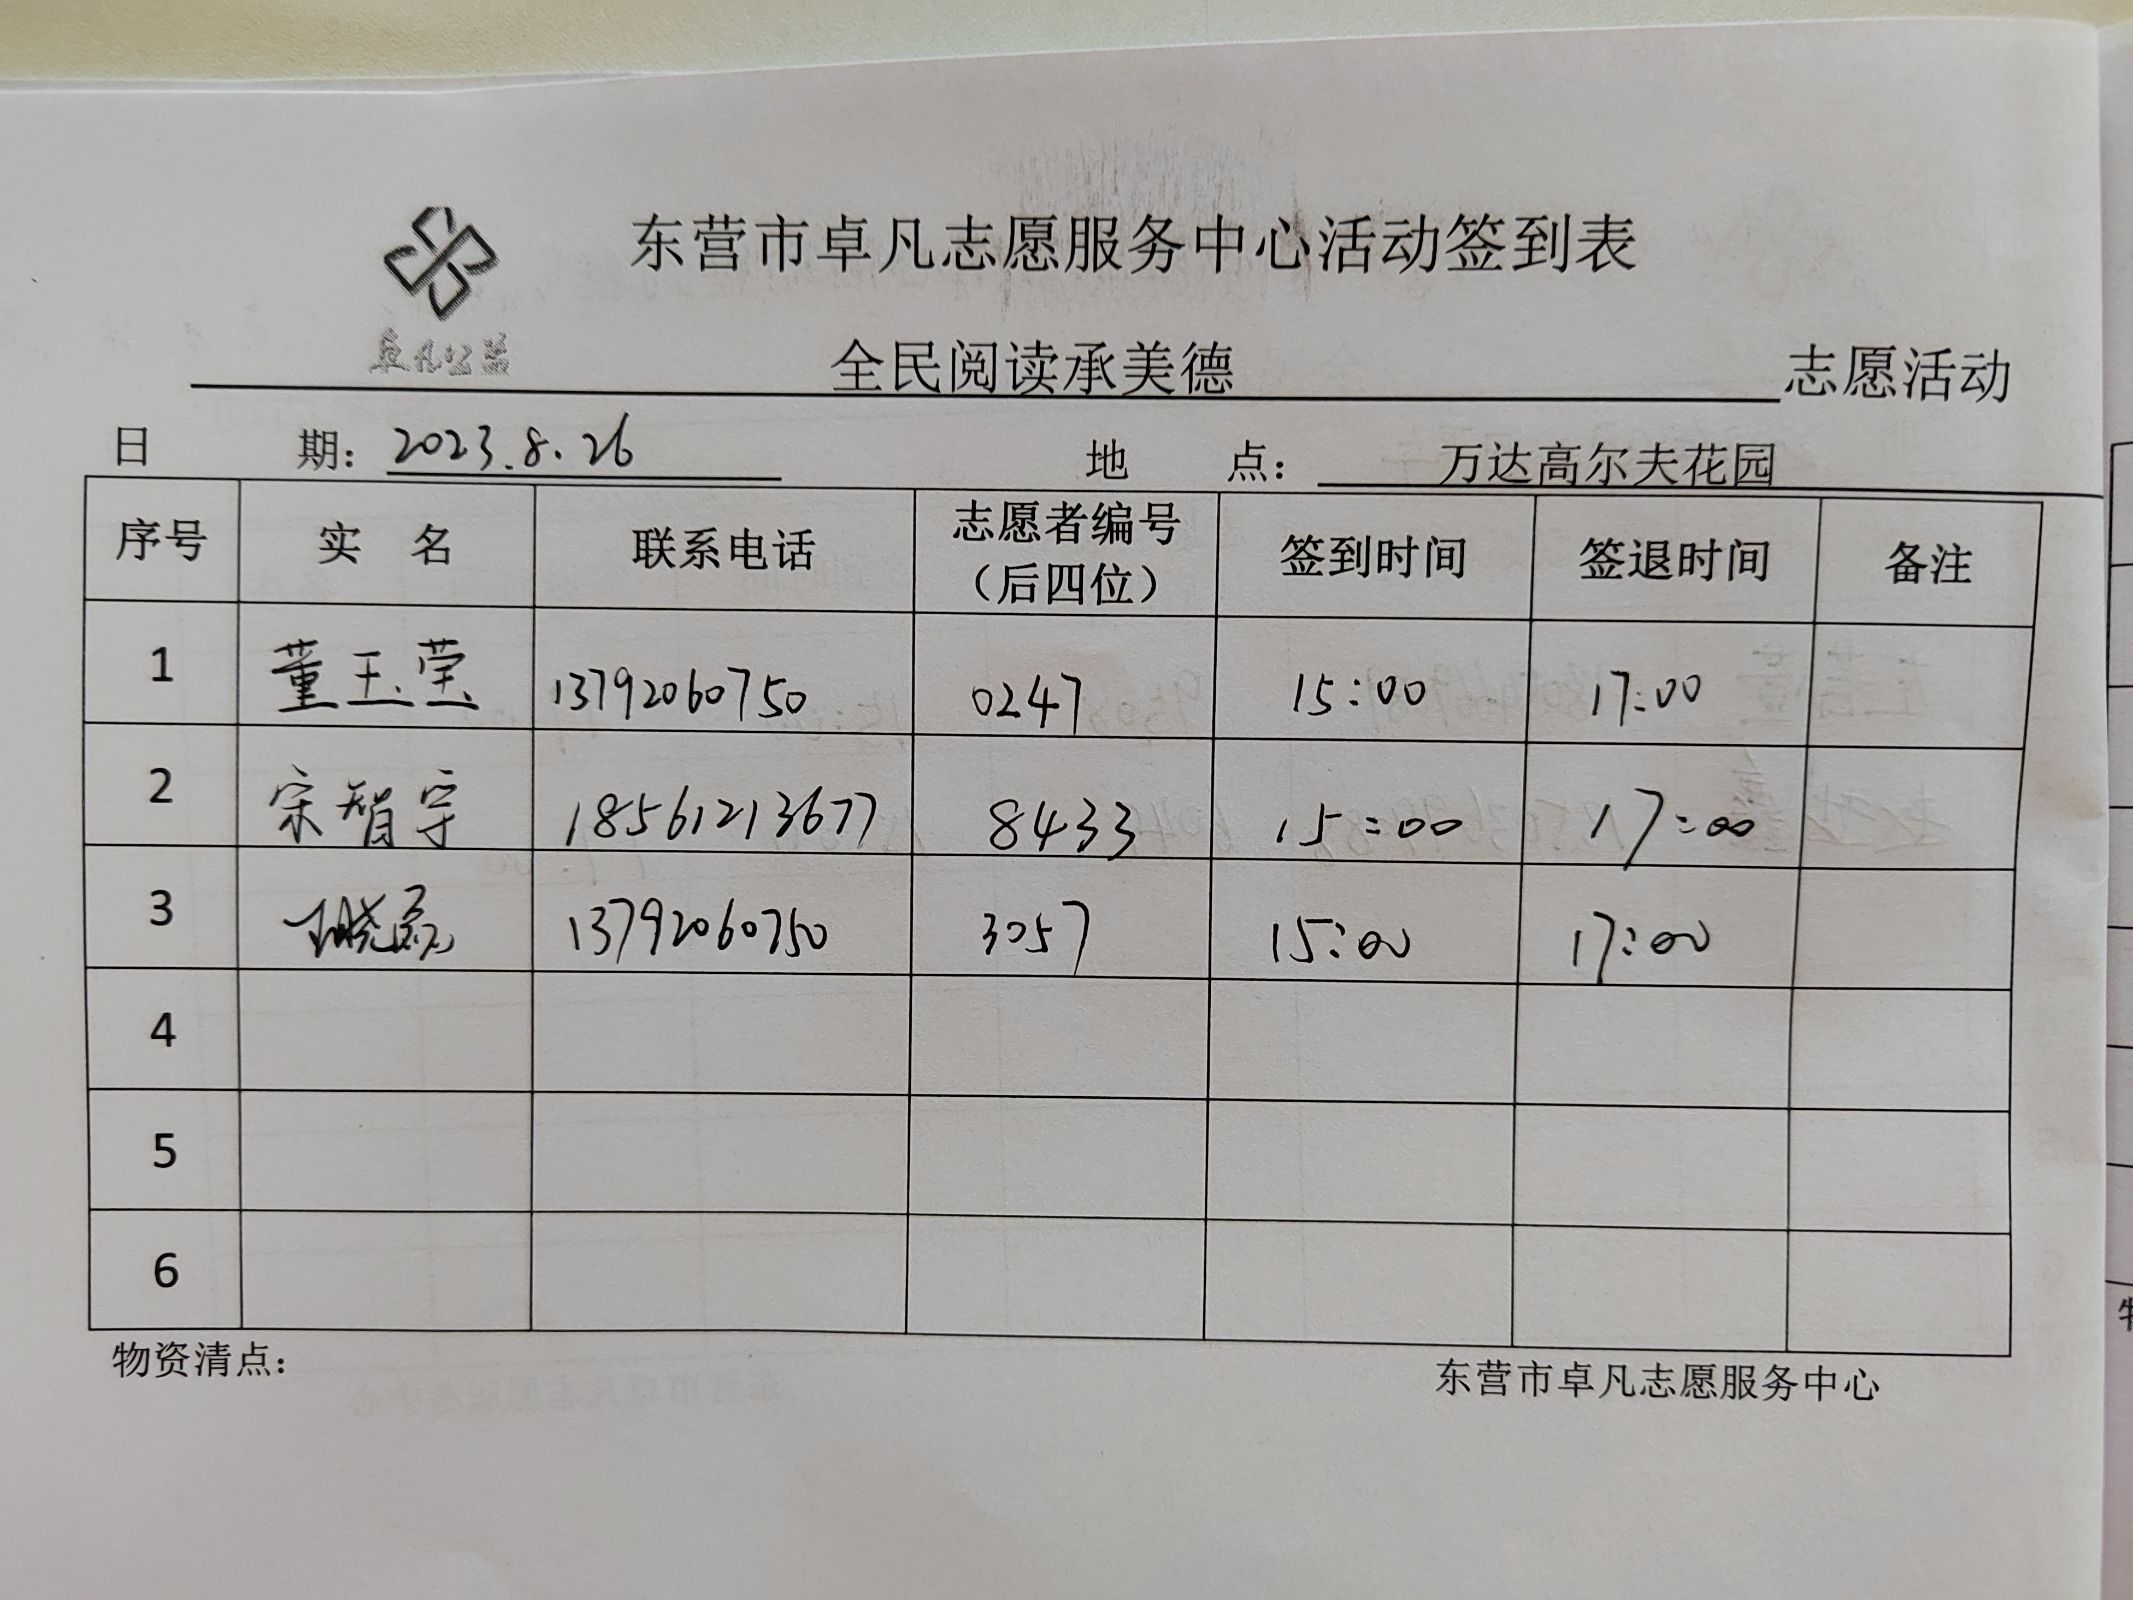 东营市卓凡志愿服务中心活动签到表
卓凡公益
全民阅读承美德 志愿活动
日 期：2023.8.26 地 点：万达高尔夫花园
序号 实 名 联系电话 志愿者编号（后四位） 签到时间 签退时间 备注
1 董玉莹 13792060750 0247 15:00 17:00
2 宋智宇 18561213677 8433 15:00 17:00
3 13792060750 3057 15:00 17:00
4
5
6
物资清点：
东营市卓凡志愿服务中心